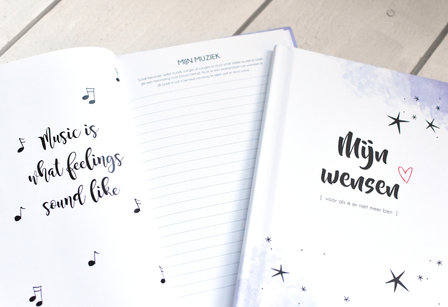 Music is
what feelings
sound like
MIJN MUZIEK
Mijn
wensen
[ voor als ik er niet meer ben ]